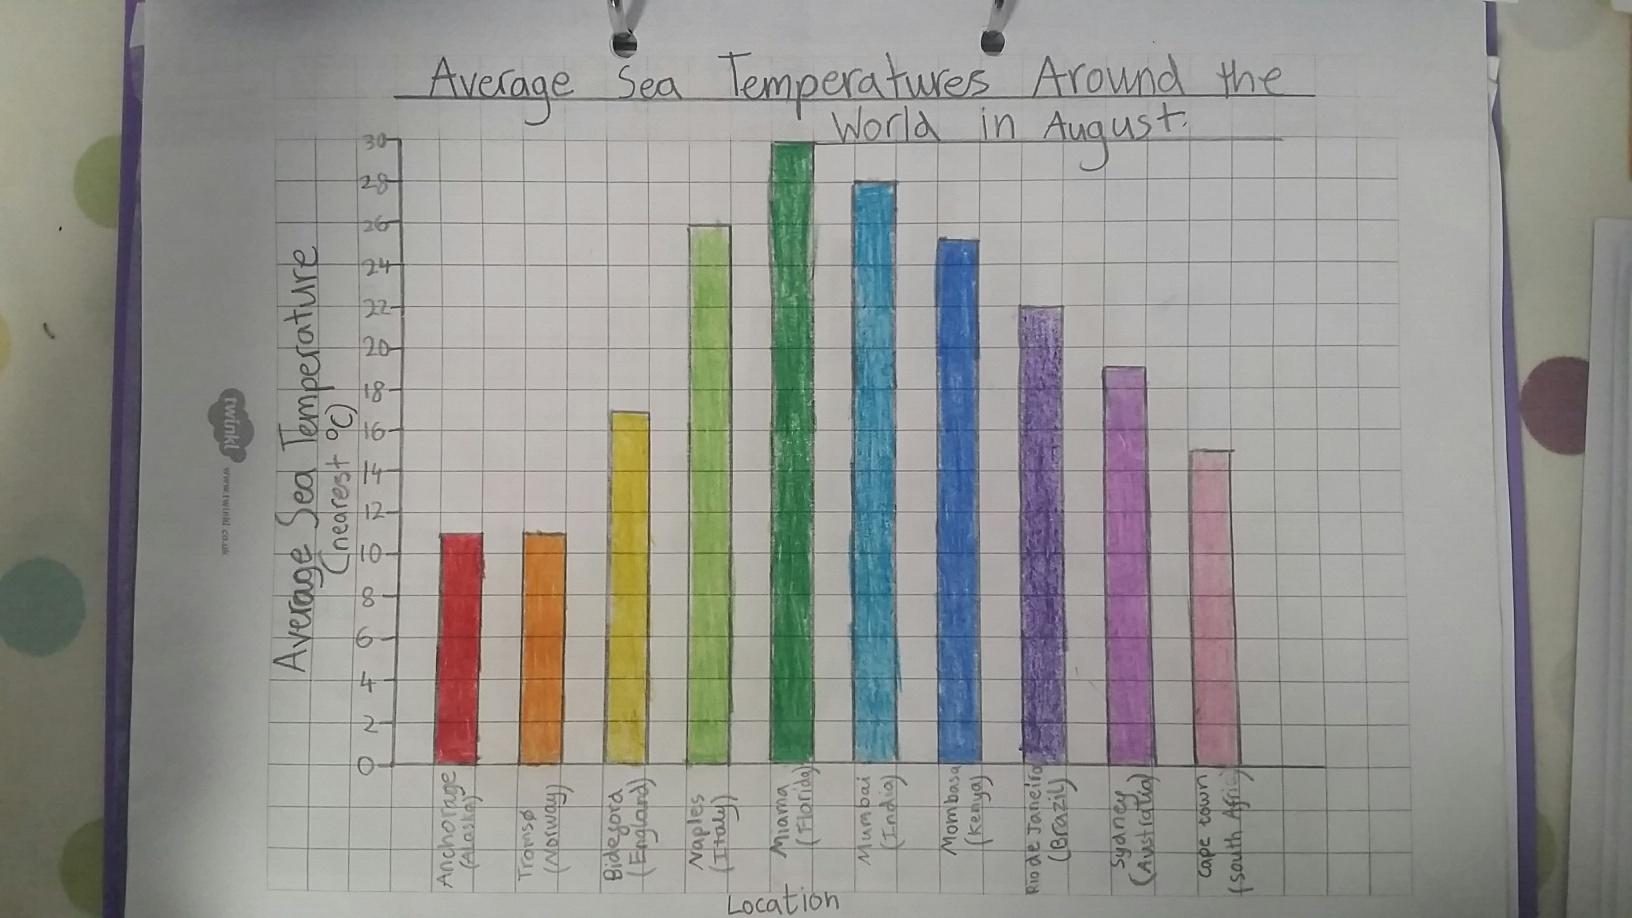 Average Sea Temperatures Around the
World in August.
Average Sea Temperature
(nearest °C)
30
28
26
24
22
20
18
16
14
12
10
8
6
4
2
0
Anchorage
(Alaska)
Tromsø
(Norway)
Bidegord
(England)
Naples
(Italy)
Miama
(Florida)
Mumbai
(India)
Mombasa
(Kenya)
Rio de Janeiro
(Brazil)
Sydney
(Australia)
Cape town
(South Africa)
Location
twinkl
www.twinkl.co.uk